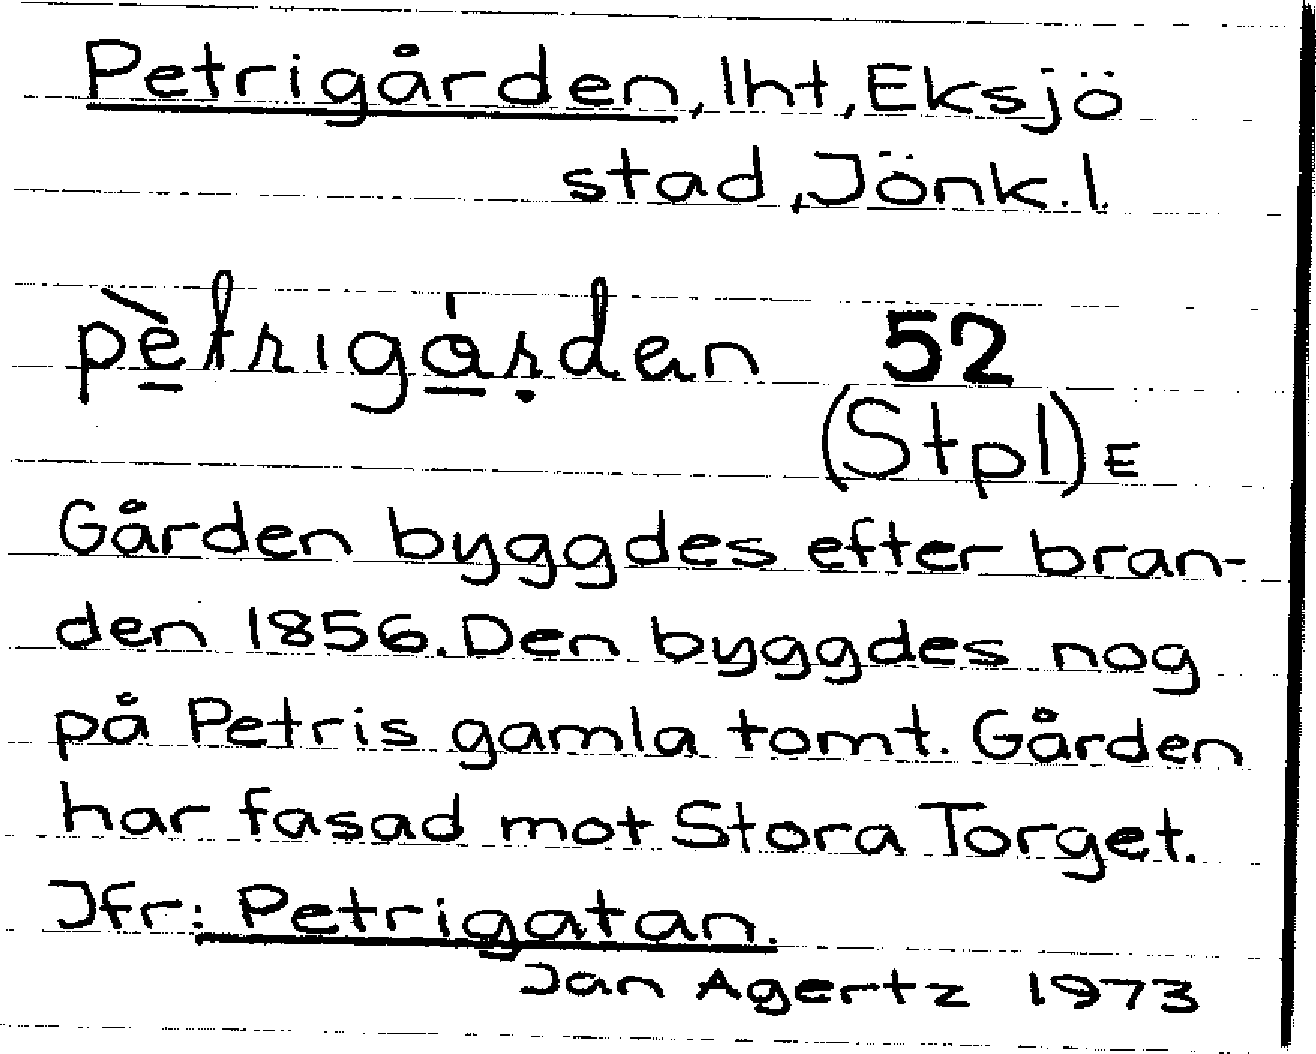 Petrigården, lht, Eksjö
stad, Jönk. l.
pètrigárḍen 52
(Stpl) E
Gården byggdes efter bran-
den 1856. Den byggdes nog
på Petris gamla tomt. Gården
har fasad mot Stora Torget.
Jfr: Petrigatan.
Jan Agertz 1973